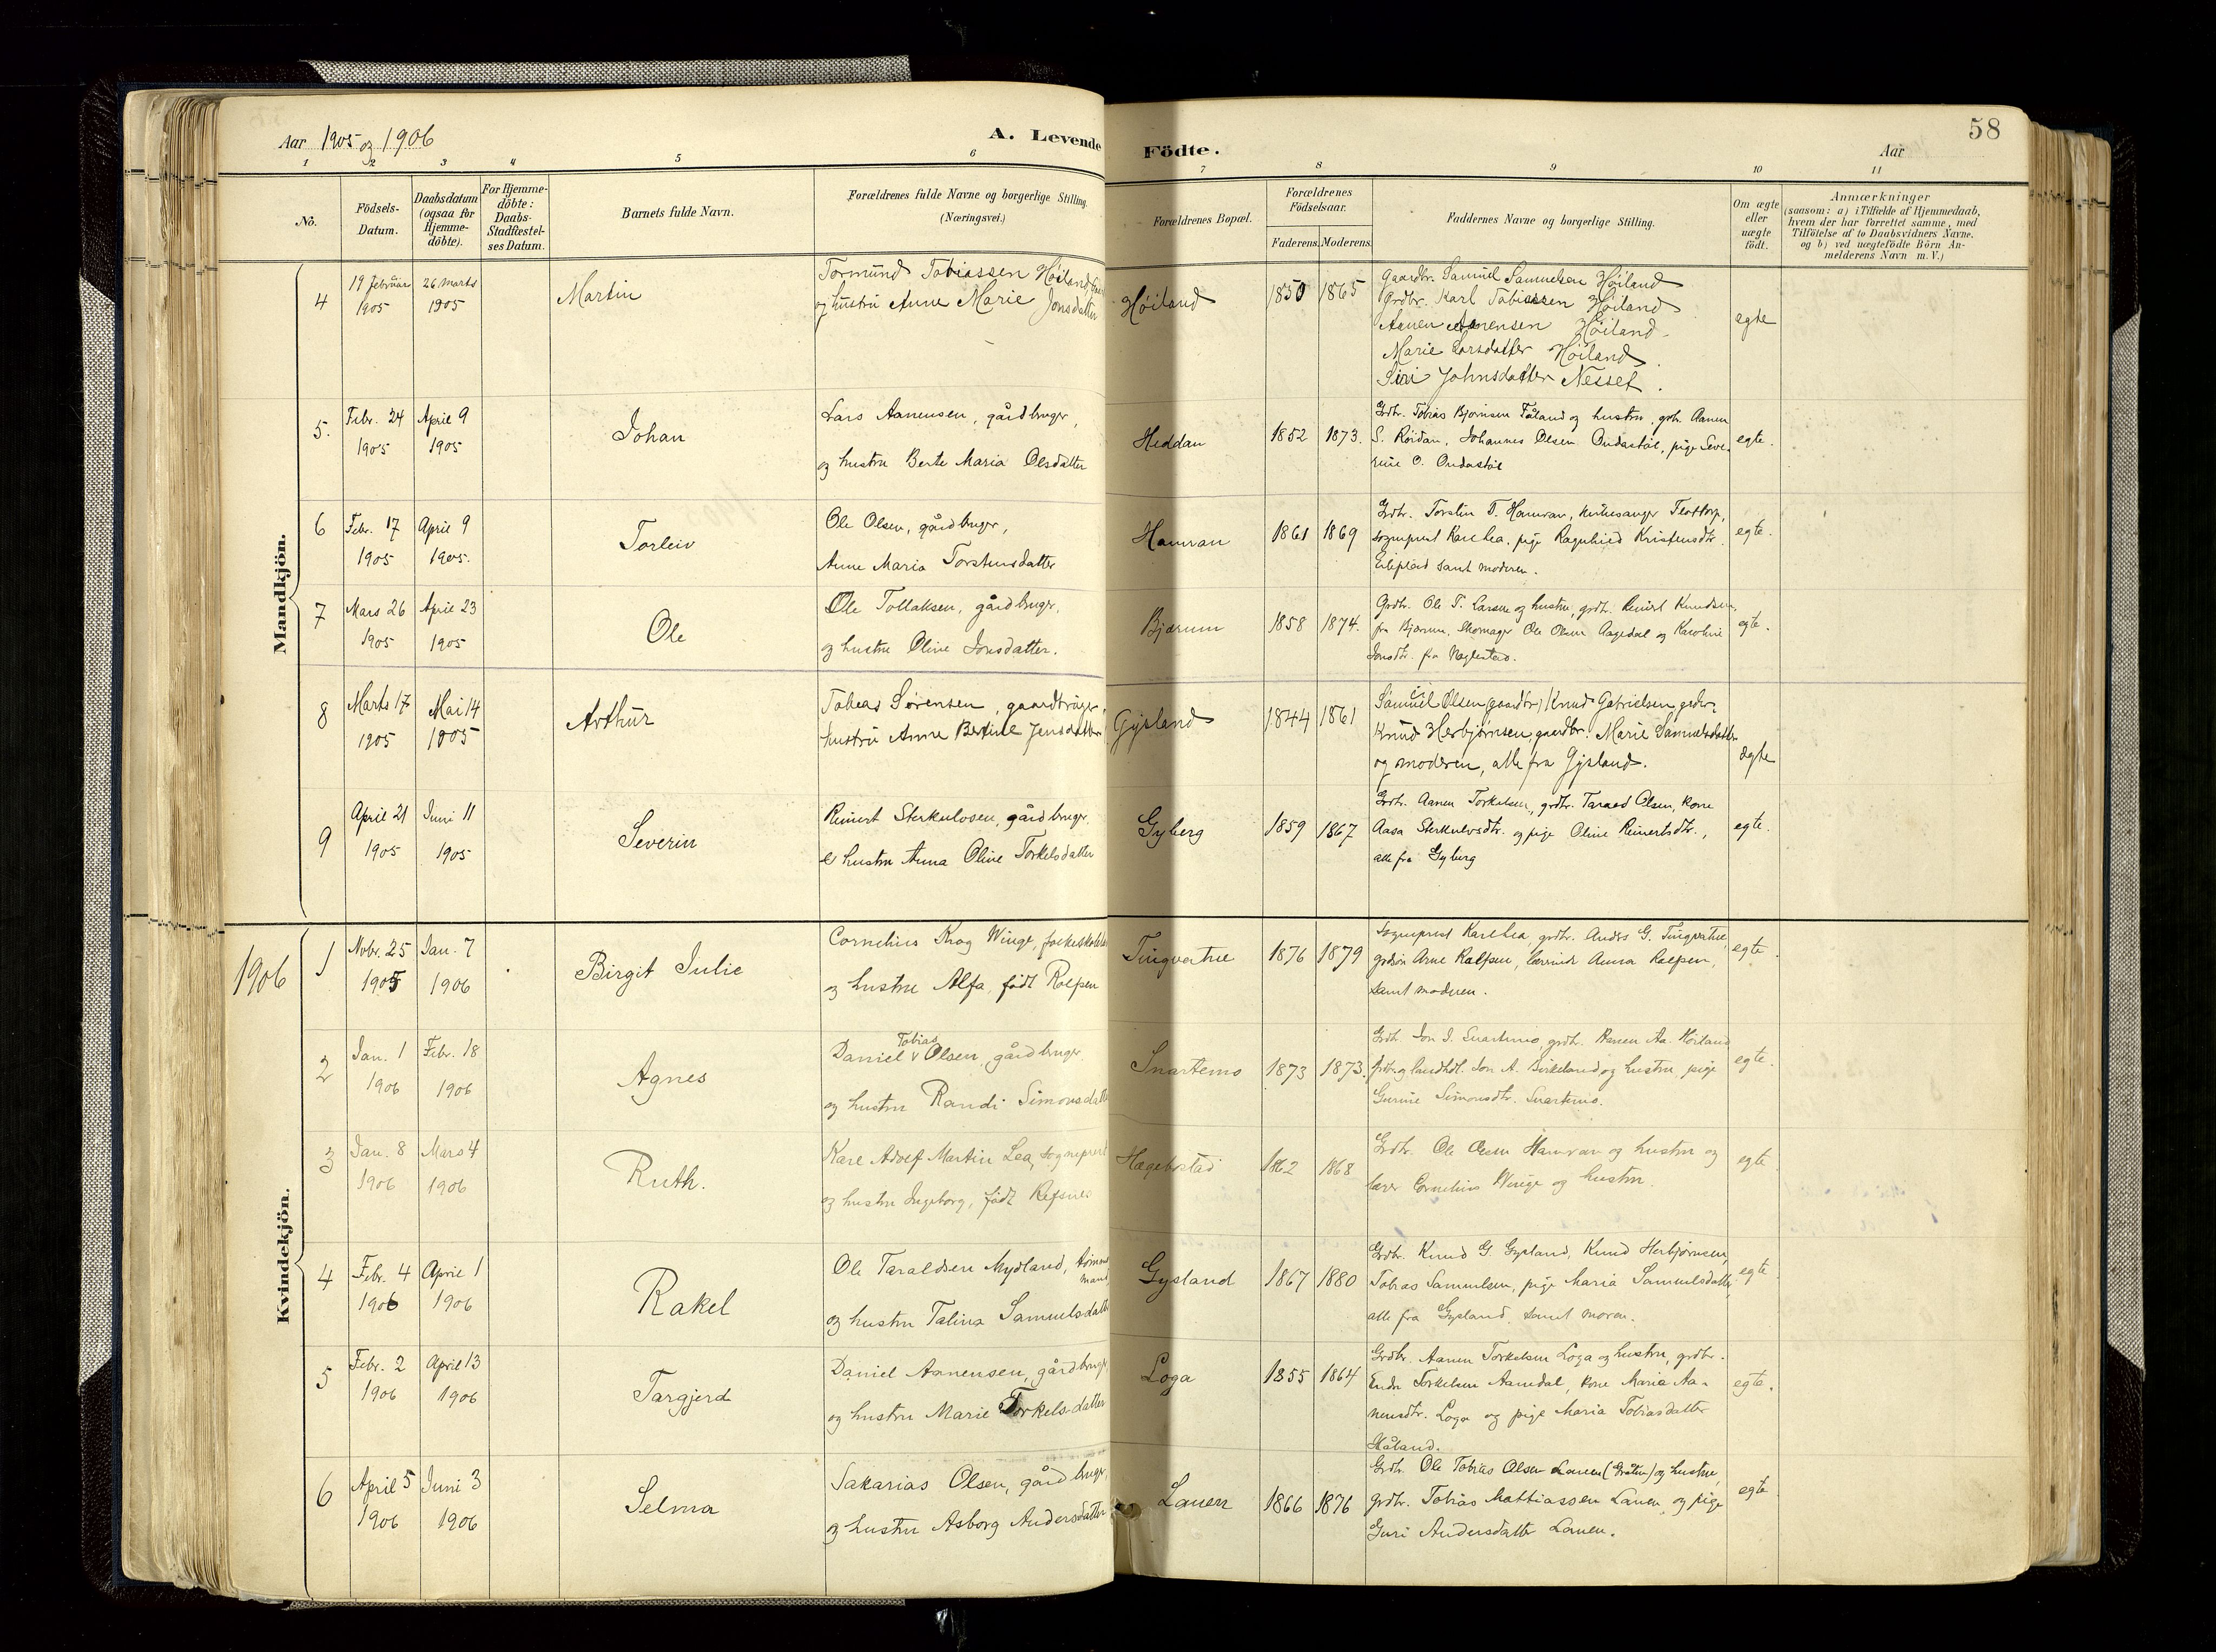 58
Aar 1905 og 1906
A. Levende Födte.
Aar
1 2 3 4 5 6 7 8 9 10 11
No.
Födsels-Datum.
Daabsdatum (ogsaa for Hjemme-döbte).
For Hjemme-döbte: Daabs-Stadfæstel-ses Datum.
Barnets fulde Navn.
Forældrenes fulde Navne og borgerlige Stilling. (Næringsvei.)
Forældrenes Bopæl.
Forældrenes Födselsaar.
Faderens. Moderens.
Faddernes Navne og borgerlige Stilling.
Om ægte eller uægte födt.
Anmærkninger
(saasom: a) i Tilfælde af Hjemmedaab,
hvem der har forrettet samme, med
Tilföielse af to Daabsvidners Navne.
og b) ved uægtefödte Börn An-
melderens Navn m. V.)
Mandkjön.
4
19 Februar 1905
26 marts 1905
Martin
Tormund Tobiassen Höiland,
og hustru Anne Marie Jonsdatter
Höiland
1850 1865
Gaardbr. Samuel Samuelsen Höiland
Grdbr. Karl Tobiassen Höiland
Aanen Aanensen Höiland
Marie Larsdatter Höiland
Siri Johnsdatter Nesset.
egte
5.
Febr. 24 1905
April 9 1905
Johan
Lars Aanensen, gårdbruger,
og hustru Berte Maria Olsdatter
Heddan
1852 1873.
Grdbr. Tobias Bjørnsen Faland og hustru, grdbr. Aanen
S. Röidan, Johannes Olsen Ondastöl, pige Seve-
rine O. Ondastöl
egte.
6
Febr. 17 1905
April 9 1905.
Torleiv
Ole Olsen, gårdbruger,
Anne Maria Torstensdatter
Hamran
1861 1869
Grdbr. Torstein T. Hamran, kirkesanger Flottorp,
sogneprest Karl Lea, pige Ragnhild Kristensdtr.
Eileplad samt moderen.
egte.
7
Mars 26 1905
April 23 1905
Ole
Ole Tollaksen, gårdbruger,
og hustru Oline Jonsdatter.
Bjærum
1858 1874.
Grdbr. Ole T. Larsen og hustru, grdbr. Reinert Knudsen,
fra Bjærum, Skomager Ole Olsen Aagedal og Karoline
Jonsdtr. fra Naglestad.
egte.
8
Marts 17 1905
Mai 14 1905
Arthur
Tobias Sørensen, gaardbruger,
hustru Anne Bertine Jensdatter
Gysland
1844 1861
Samuel Olsen (gaardbr) Knud Gabrielsen grdbr,
Knud Herbjørnsen, gaardbr. Marie Samuelsdatter
og moderen, alle fra Gysland.
ægte
9
April 21 1905
Juni 11 1905
Severin
Reinert Sterkulvsen, gårdbruger.
& hustru Anna Oline Torkelsdatter
Gyberg
1859 1867
Grdbr. Aanen Torkelsen, grdbr. Tarald Olsen, kone
Aasa Sterkulvsdtr. og pige Oline Reinertsdtr.,
alle fra Gyberg
egte.
1906
Kvindekjön.
1
Nobr. 25 1905
Jan. 7 1906
Birgit Julie
Cornelius Krog Winge, folkeskolelærer
og hustru Alfa, født Rolfsen
Tingvatne
1876 1879
Sogneprest Karl Lea, grdbr. Anders G. Tingvatne,
grdsøn Arne Rolfsen, lærerinde Anna Rolfsen,
samt moderen.
egte.
2
Jan. 1 1906
Febr. 18 1906
Agnes
Daniel Tobias Olsen, gårdbruger,
og hustru Randi Simonsdatter
Snartemo
1873 1873.
Grdbr. Jon J. Snartemo, grdbr. Aanen Aa. Höiland
grdbr. og landhdl. Jon A. Birkeland og hustru, pige
Gunnie Simonsdtr. Snartemo.
egte.
3
Jan. 8 1906
Mars 4 1906
Ruth.
Karl Adolf Martin Lea, sogneprest
og hustru Ingeborg, født Refsnes
Hægebostad
1862 1868
Grdbr. Ole Olsen Hamran og hustru og
lærer Cornelius Winge og hustru.
egte
4
Febr. 4 1906
April 1 1906
Rakel
Ole Taraldsen Mydland, tømmermand
og hustru Talina Samuelsdatter
Gysland
1867 1880
Grdbr. Knud G. Gysland, Knud Herbjørnsen,
Tobias Samuelsen, pige Maria Samuelsdatter,
alle fra Gysland, samt moren.
egte
5
Febr. 2 1906
April 13 1906
Targjerd
Daniel Aanensen, gårdbruger
og hustru Marie Torkelsdatter
Loga
1855 1864
Grdbr. Aanen Torkelsen Loga og hustru, grdbr.
Endre Torkelsen Aamdal, kone Maria Aa-
nensdtr. Loga og pige Maria Tobiasdatter
Håland.
egte.
6
April 5 1906
Juni 3 1906
Selma
Sakarias Olsen, gårdbruger,
og hustru Asborg Andersdatter
Lauen
1866 1876
Grdbr. Ole Tobias Olsen Lauen (Bråten) og hustru,
grdbr. Tobias Mattiassen Lauen og pige
Guri Andersdatter Lauen.
egte